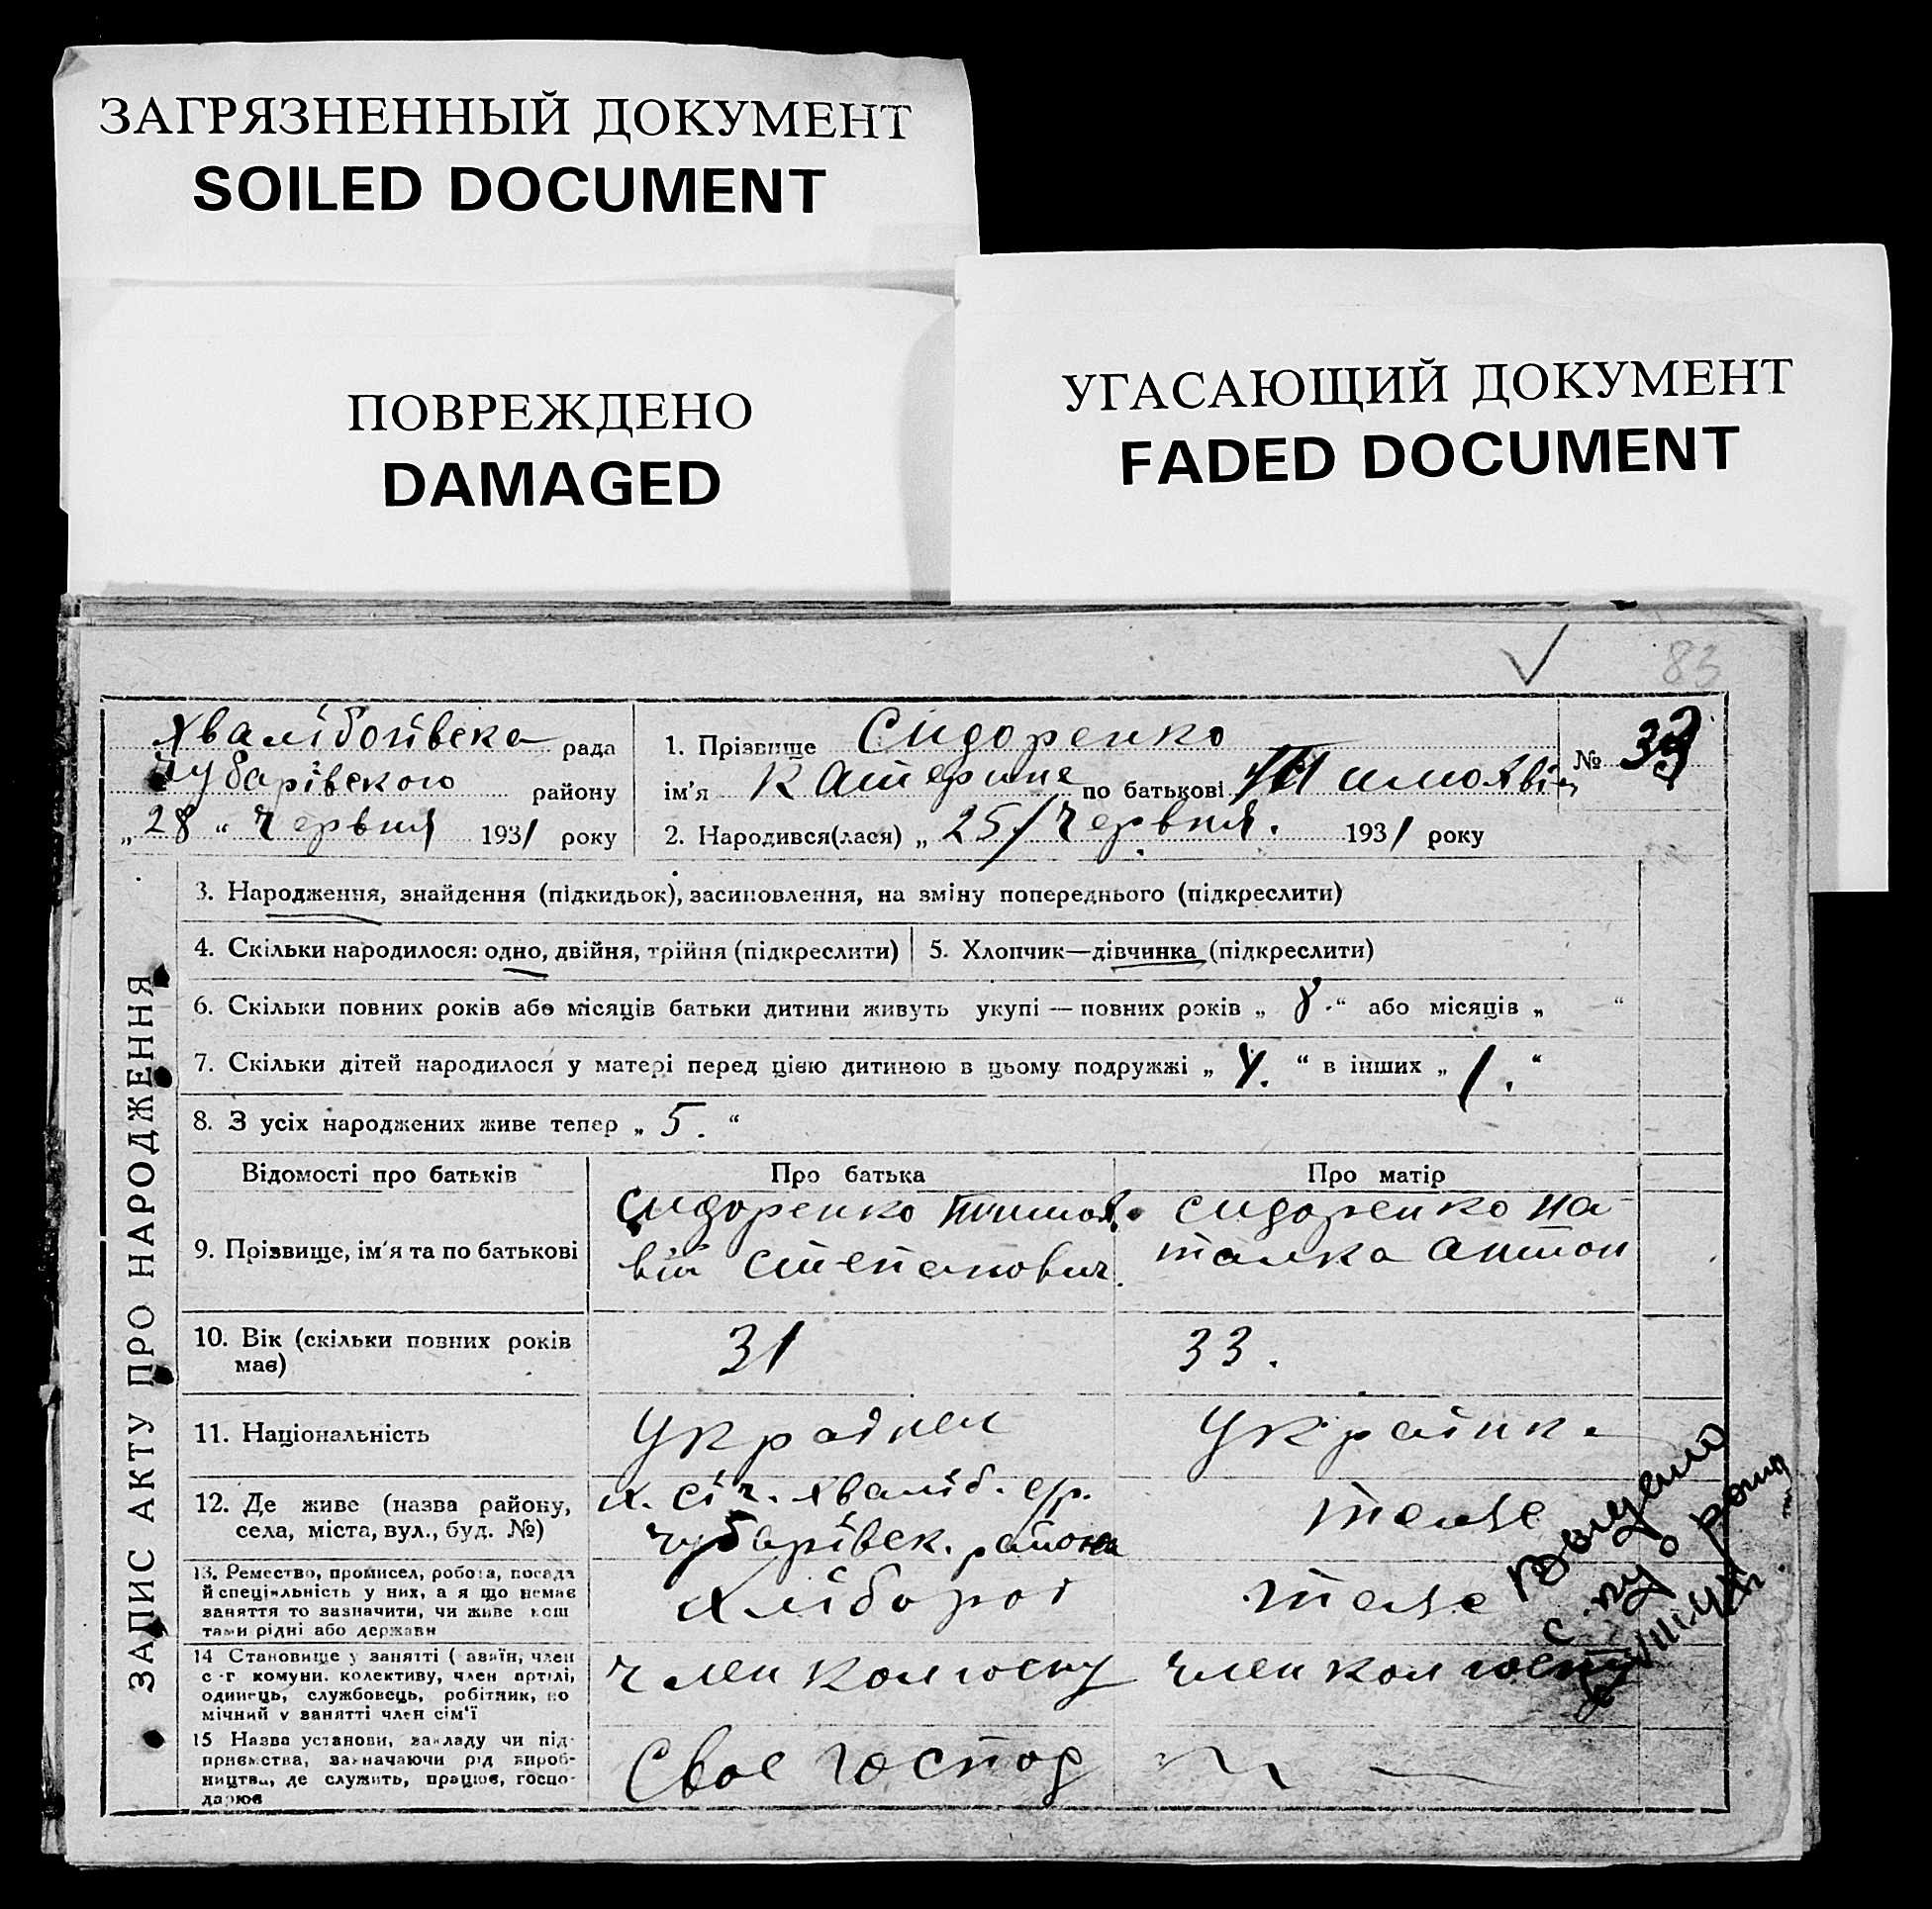 ЗАГРЯЗНЕННЫЙ ДОКУМЕНТ
SOILED DOCUMENT
ПОВРЕЖДЕНО
DAMAGED
УГАСАЮЩИЙ ДОКУМЕНТ
FADED DOCUMENT
83
Хвалібоґівська рада
Чубарівського району
„28“ Червня 1931 року
1. Прізвище Сидоренко
ім'я Катерина по батькові
№
2. Народився(лася) „25/Червня. 1931 року
ЗАПИС АКТУ ПРО НАРОДЖЕННЯ
3. Народження, знайдення (підкидьок), засиновлення, на зміну попереднього (підкреслити)
4. Скільки народилося: одно, двійня, трійня (підкреслити)
5. Хлопчик—дівчинка (підкреслити)
6. Скільки повних років або місяців батьки дитини живуть укупі — повних років „ 8.“ або місяців „ “
7. Скільки дітей народилося у матері перед цією дитиною в цьому подружжі „ 4. “ в інших „ 1. “
8. З усіх народжених живе тепер „ 5. “
Відомості про батьків
Про батька
Про матір
9. Прізвище, ім'я та по батькові
Сидоренко Тимох-
вій Степанович.
Сидоренко На-
талка Антон
10. Вік (скільки повних років
має)
31
33.
11. Національність
Українец
Українка
12. Де живе (назва району,
села, міста, вул., буд. №)
Чубарівск. района
тоже
13. Ремество, промисел, робота, посада
й спеціяльність у них, а я що немає
заняття то зазначити, чи живе кош
тами рідні або держави
Хлібороб
тоже
14 Становище у занятті ( авяін, член
с-г комуни. колективу, член артілі,
одинець, службовець, робітник, по
мічний у занятті член сім'ї
член колгоспу
член колгоспу
15 Назва установи, закладу чи під-
приємства, зазначаючи рід вироб-
ництва, де служить, працює, госпо-
дарює
Своє господ